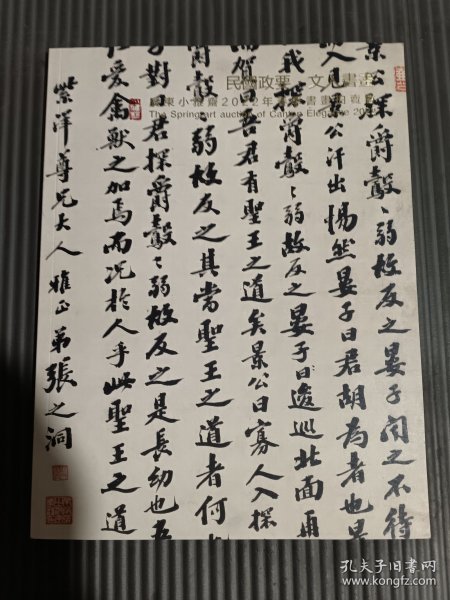 民國政要 文人書畫
廣東小雅齋2022年
The Spring art auction of Canton Elegance 20
景公探爵鷇〻弱故反之晏子聞之不待
入見景公汗出惕然晏子曰君胡為者也景
我探爵鷇〻弱故反之晏子曰逡巡北面再
而賀曰吾君有聖王之道矣景公曰寡人入探
爵鷇弱故反之其當聖王之道者何也
子對曰君探爵鷇〻弱故反之是長幼也吾
仁愛禽獸之加焉而況於人乎此聖王之道
紫洋尊兄大人雅正弟張之洞
孔夫子旧书网
www.kongfz.com